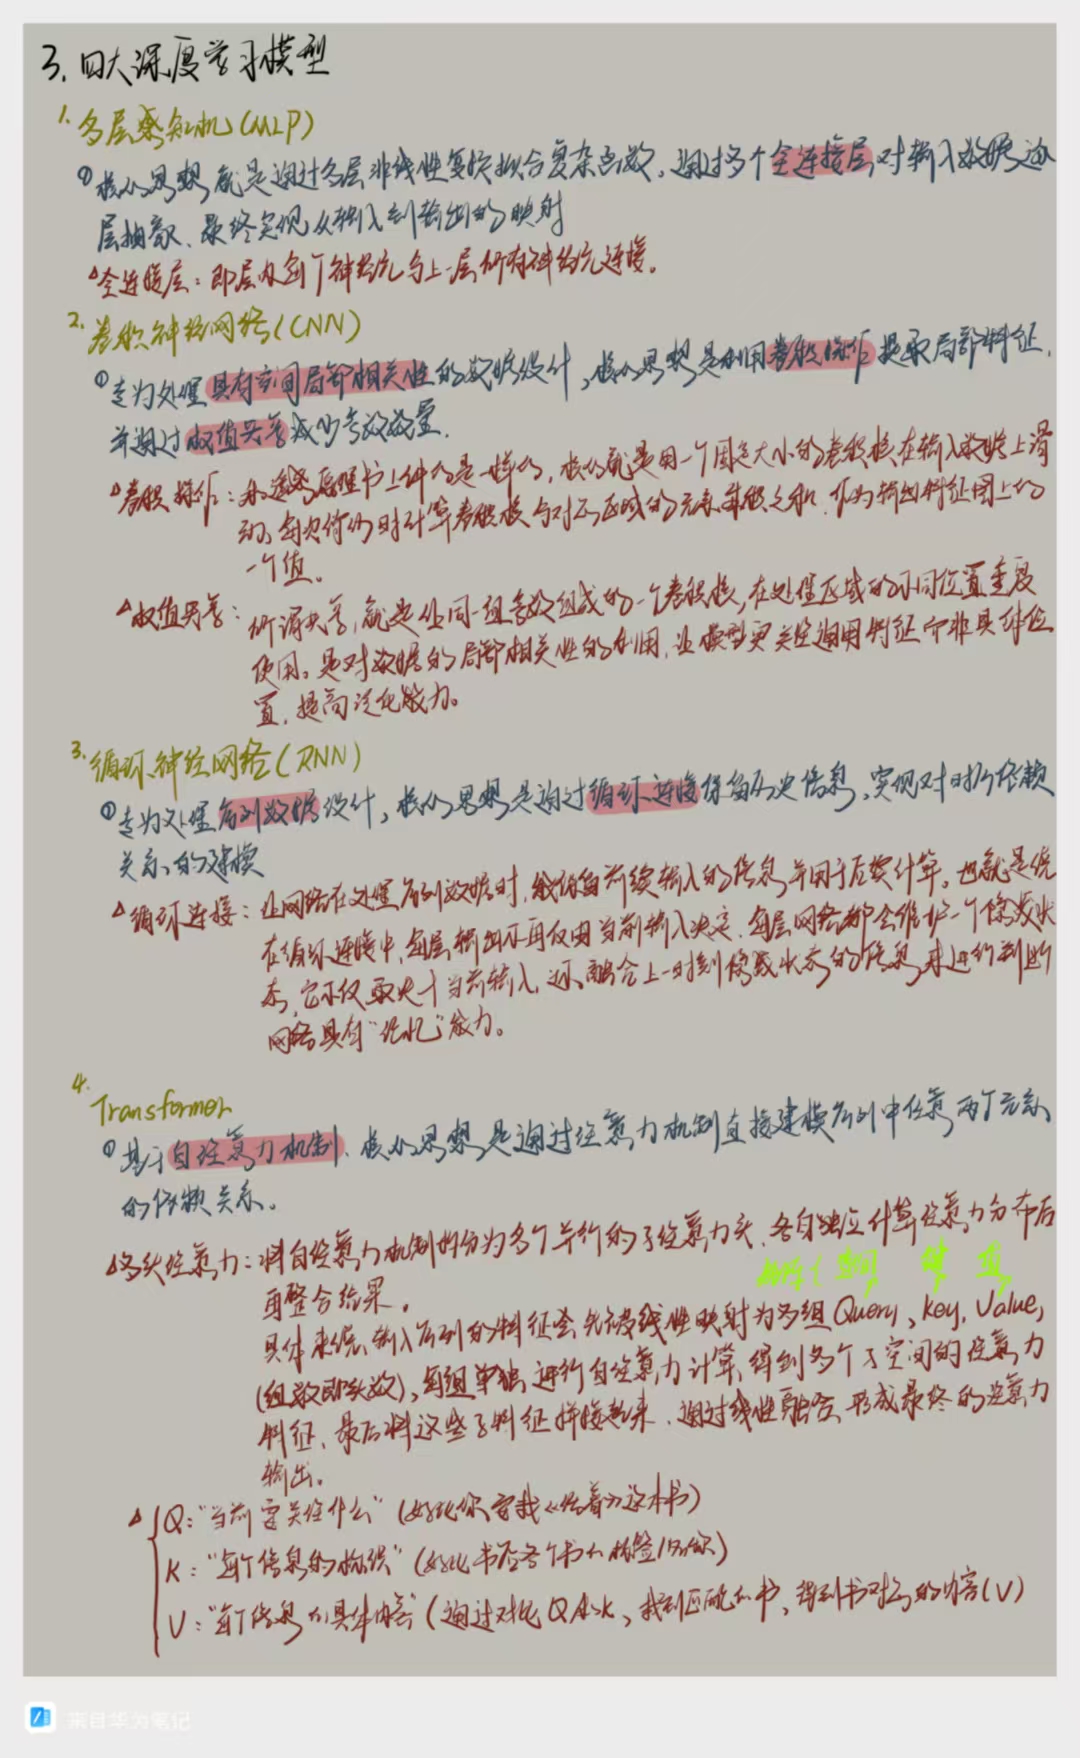 3. 四大深度学习模型
1. 多层感知机(MLP)
① 核心思想就是通过多层非线性变换拟合复杂函数。通过多个全连接层,对输入数据逐
层抽象、最终实现从输入到输出的映射
△全连接层：即层内每个神经元与上一层所有神经元连接。
2. 卷积神经网络(CNN)
① 专为处理具有空间局部相关性的数据设计,核心思想是利用卷积操作提取局部特征,
并通过权值共享减少参数数量.
△卷积操作：和 原理 上 的是一样的,核心就是用一个固定大小的卷积核在输入数据上滑
动,每次滑动时计算卷积核与对应区域的元素乘积之和,作为输出特征图上的
一个值。
△权值共享：所谓共享,就是让同一组参数组成的一个卷积核,在处理区域的不同位置重复
使用。是对数据的局部相关性的利用,让模型更关注通用特征而非具体位
置,提高泛化能力。
3. 循环神经网络(RNN)
① 专为处理序列数据设计,核心思想是通过循环连接保留历史信息,实现对时序依赖
关系的建模
△循环连接：让网络在处理序列数据时,能保留前续输入的信息并用于后续计算。也就是说
在循环连接中,每层输出不再仅由当前输入决定,每层网络都会维护一个隐藏状
态,它不仅取决于当前输入,还融合上一时刻隐藏状态的信息,来进行判断
网络具有“记忆”能力。
4. Transformer
① 基于自注意力机制,核心思想是通过注意力机制直接建模序列中任意两个元素
的依赖关系。
△多头注意力：将自注意力机制拆分为多个并行的子注意力头,各自独立计算注意力分布后
再整合结果。
键 值
具体来说,输入序列的特征会先被线性映射为多组Query、key、Value,
(组数即头数),每组单独进行自注意力计算,得到多个子空间的注意力
特征,最后将这些子特征拼接起来,通过线性融合,形成最终的注意力
输出。
△ Q：“当前要关注什么”(好比你要找《 》这本书)
K：“每个信息的标识”(好比书店各个书的标签 )
V：“每个信息的具体内容”(通过对比Q和K,找到匹配的书,得到书对应的内容(V)
来自华为笔记